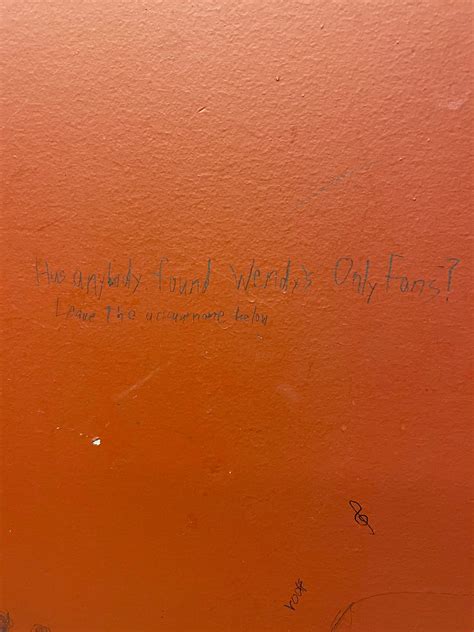 Has anybody found Wendy's OnlyFans?
Leave the username below